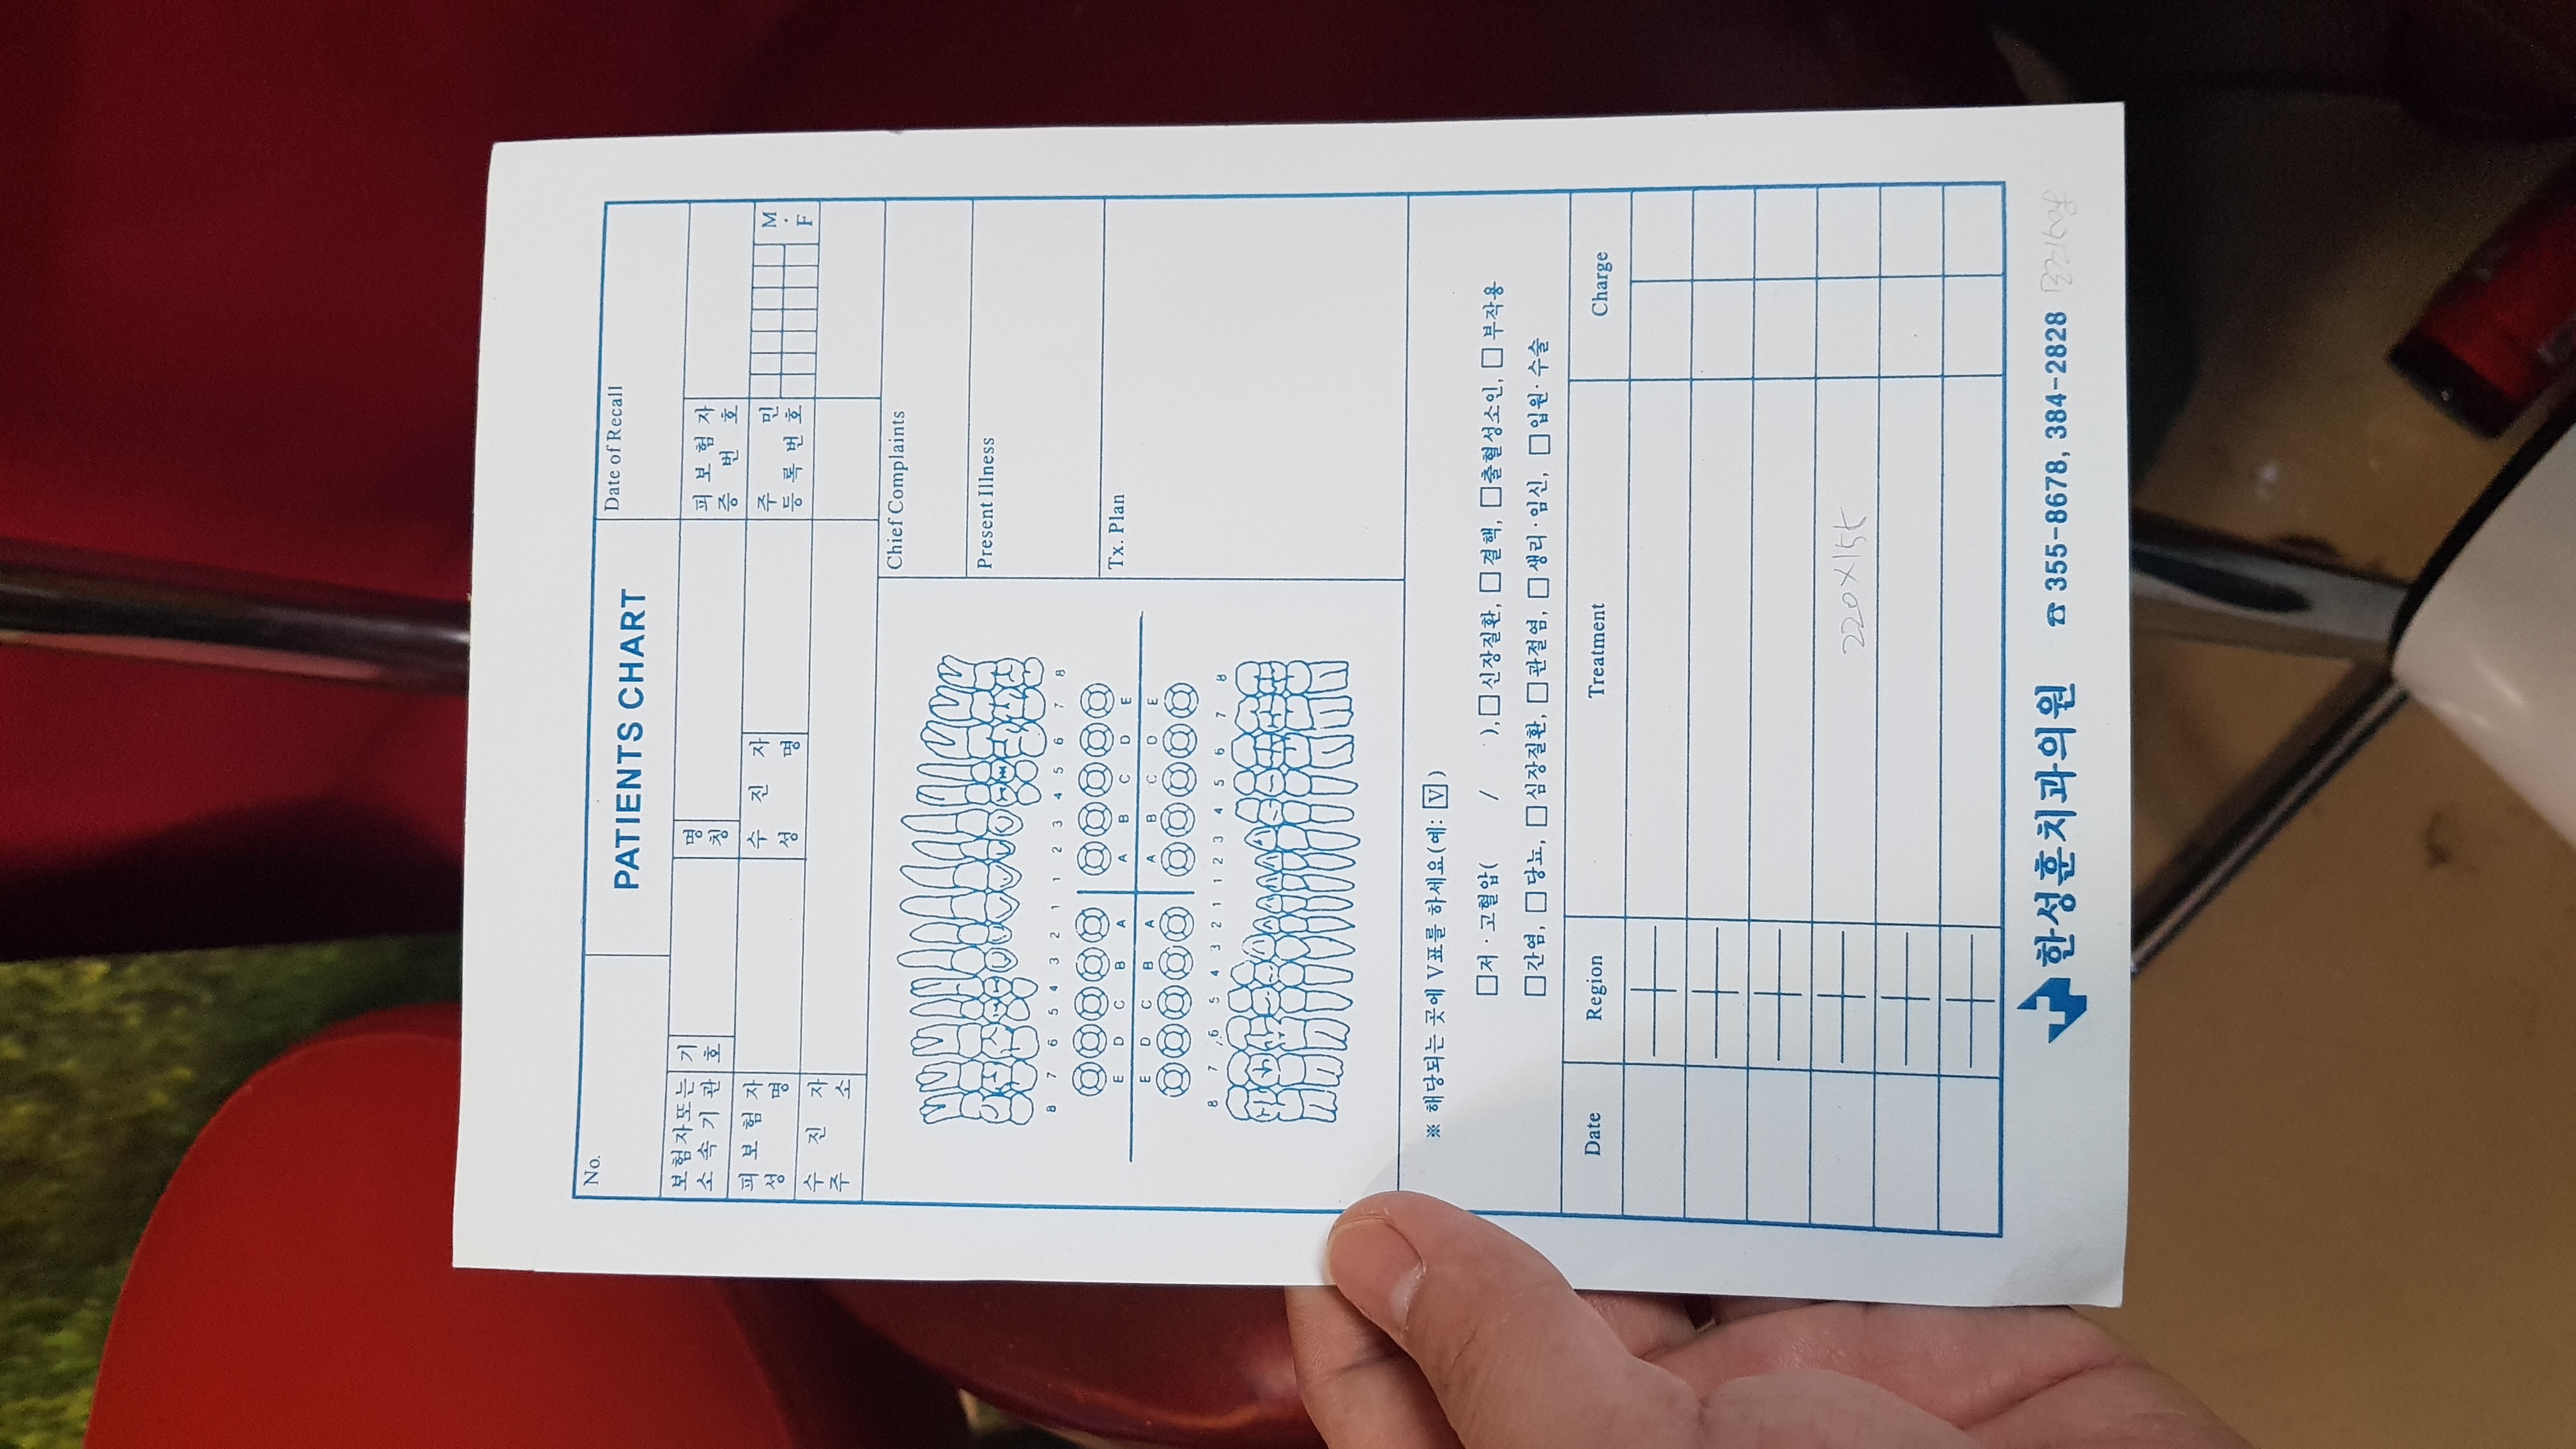 No.
PATIENTS CHART
Date of Recall
보험자또는
소속기관
기호
명칭
피보험자
증 번 호
피보험자
성 명
수진자
성 명
주 민
등록번호
M · F
수 진 자
주 소
Chief Complaints
Present Illness
Tx. Plan
8 7 6 5 4 3 2 1 1 2 3 4 5 6 7 8
E D C B A A B C D E
E D C B A A B C D E
8 7 6 5 4 3 2 1 1 2 3 4 5 6 7 8
※ 해당되는 곳에 V표를 하세요(예: V)
□저·고혈압( / ), □신장질환, □결핵, □출혈성소인, □부작용
□간염, □당뇨, □심장질환, □관절염, □생리·임신, □입원·수술
Date Region Treatment Charge
220X155
한성훈치과의원 ☎ 355-8678, 384-2828